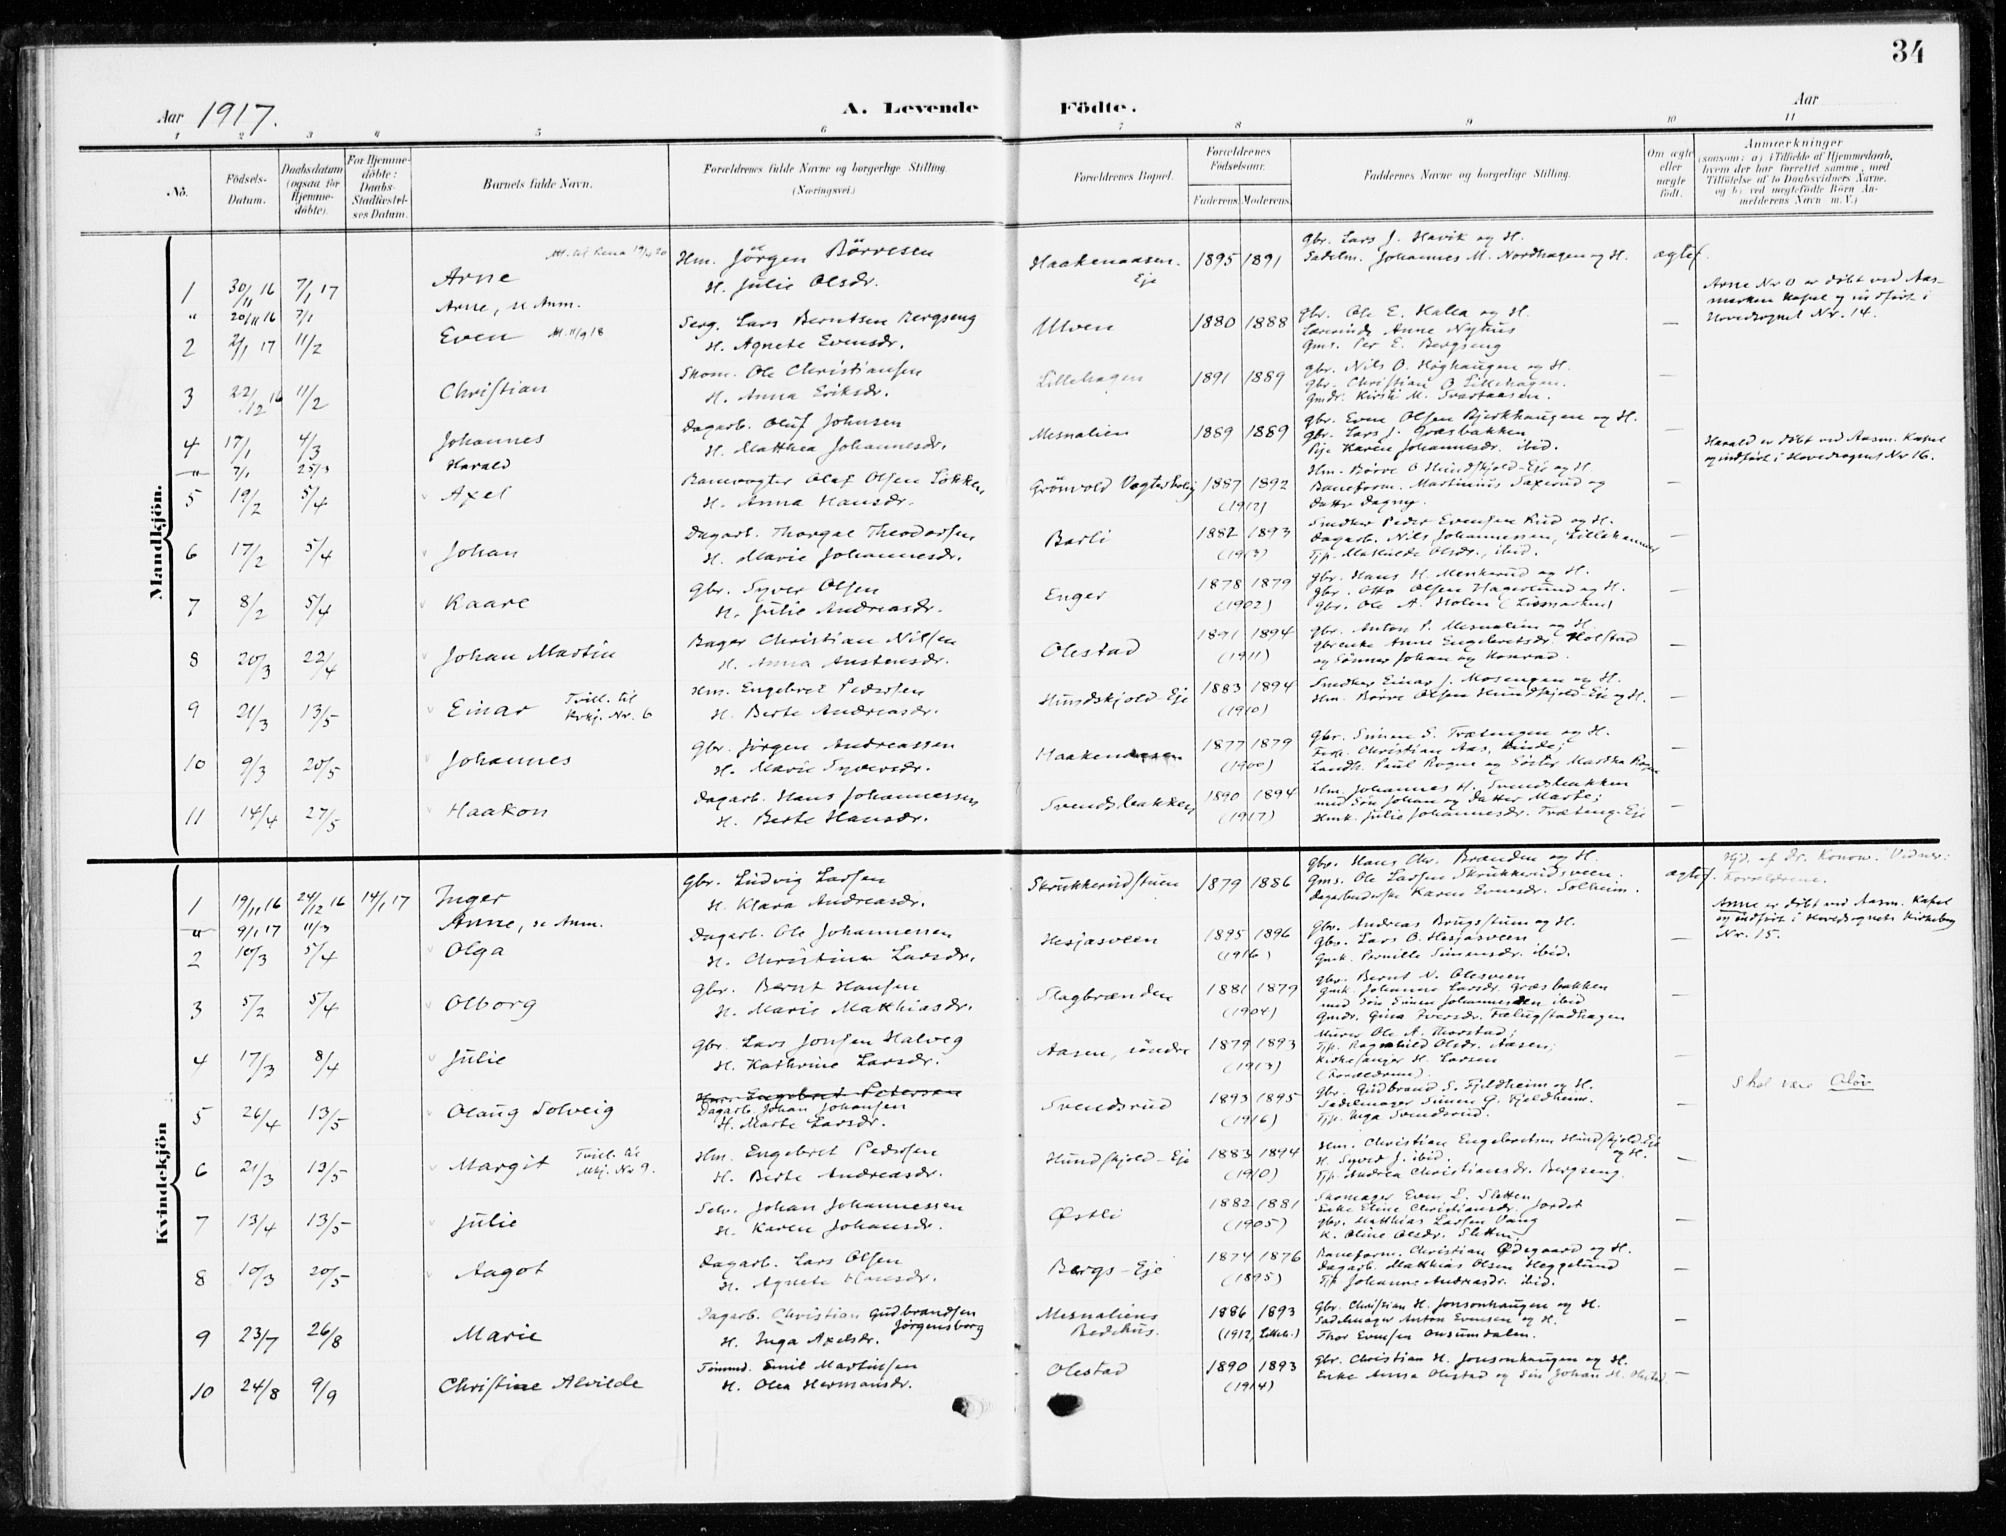 34
Aar 1917.
A. Levende Födte.
Aar
1 2 3 4 5 6 7 8 9 10 11
No.
Födsels-Datum.
Daabsdatum (ogsaa for Hjemme-döbte).
For Hjemme-döbte: Daabs-Stadfæstel-ses Datum.
Barnets fulde Navn.
Forældrenes fulde Navne og borgerlige Stilling. (Næringsvei.)
Forældrenes Bopæl.
Forældrenes Födselsaar.
Faderens. Moderens.
Faddernes Navne og borgerlige Stilling.
Om ægte eller uægte födt.
Anmærkninger
(saasom: a) i Tilfælde af Hjemmedaab, hvem der har forrettet samme, med Tilföielse af to Daabsvidners Navne, og b) ved uægtefödte Börn Anmelderens Navn m. V.)
Mandkjön.
1 30/11 16 7/1 17 Arne Att. til Rena 19/4 20 Hm. Jörgen Börresen H. Julie Olsdr. Haakenaasen-Eje 1895 1891 Gbr. Lars J. Havik og H. Sadelm. Johannes M. Nordhagen og H. ægtef.
" 20/11 16 7/1 Arne, se Anm. Arne Nr 0 er døbt ved Aasmarken Kapel og indført i Hovedsognet Nr. 14.
2 2/1 17 11/2 Even Att. 11/9 18 Serg. Lars Berntsen Bergseng H. Agnete Evensdr. Ulven 1880 1888 Gbr. Ole E. Kalla og H. Lærerinde Anne Nyhus Gms. Per E. Bergseng —
3 22/12 16 11/2 Christian Skom. Ole Christiansen H. Anna Eriksdr. Lillehagen 1891 1889 Gbr. Nils O. Høghaugen og H. Gbr. Christian O Lillehagen. Gmdr. Kirsti M. Svartaasen. —
4 17/1 4/3 Johannes Dagarb. Oluf Johnsen H. Matthea Johannesdr. Mesnalien 1889 1889 Gbr. Even Olsen Bjerkhaugen og H. Gbr. Lars J. Græsbakken Pije Karen Johannesdr. ibid. —
" 7/1 25/3 Harald Harald er døbt ved Aasm. Kapel og indført i Hovedsognet Nr 16.
5 19/2 5/4 Axel Banevogter Olaf Olsen Løkken H. Anna Hansdr. Grönvold Vogterbolig 1887 1892 (1912) Hm. Börre O Hundskjold-Eje og H Baneform. Martinius Saxerud og Datter Dagny. —
6 17/2 5/4 Johan Dagarb. Thorgal Theodorsen H. Marie Johannesdr. Barli 1882 1893 (1913) Smedker Peder Evensen Rud og H. Dagarb. Nils Johannessen, Lillehammer Tjp. Mathilde Olsdr., ibid. —
7 8/2 5/4 Kaare Gbr. Syver Olsen H. Julie Andreasdr. Enger 1878 1879 (1902) Gbr. Hans H. Menkerud og H. Gbr. Otto Olsen Hagerlund og H. Gbr. Ole A. Holen (Lismarken) —
8 20/3 22/4 Johan Martin Bager Christian Nilsen H. Anna Austensdr. Olestad 1891 1894 (1911) Gbr. Anton P. Mesnalien og H. Gbrenke Anne Engebretsdr. Holstad og Sønner Johan og Konrad. —
9 21/3 13/5 Einar Tvill. til Kvkj. Nr. 6 Hm. Engebret Pedersen H. Berte Andreasdr. Hundskjold-Eje 1883 1894 (1910) Smedker Einar J. Mosengen og H. Hm. Börre Olsen Hundskjold-Eje og H. —
10 9/3 20/5 Johannes Gbr. Jörgen Andreassen H. Marie Syversdr. Haakenaasen 1877 1879 (1900) Gbr. Simen S. Trætengen og H. Christian Aas, Landh. Paul Rogne og Søster Martha Rogne —
11 14/4 27/5 Haakon Dagarb. Hans Johannessen H. Berte Hansdr. Svendsbakken 1890 1894 (1917) Hm. Johannes H. Svendsbakken med Søn Johan og Datter Marte; Hmk. Julie Johannesdr. Træteng-Eje —
Kvindekjön
1 19/11 16 24/12 16 14/1 17 Inger Gbr. Ludvig Larsen H. Klara Andreasdr. Skrukkerudstuen 1879 1886 Gbr. Hans Chr. Brænden og H. Gms. Ole Larsen Skrukkerudsveen. Dagarbeiderske Karen Evensdr. Solheim. ægtef. Hjd. af Dr. Konow. Vidner: Forældrene.
" 9/1 17 11/3 Anne, se Anm. Anne er døbt ved Aasm. Kapel og indført i Hovedsognets Kirkebog Nr. 15.
2 10/3 5/4 Olga Dagarb. Ole Johannessen H. Christine Larsdr. Hesjasveen 1895 1896 (1916) Gbr. Andreas Brugsstuen og H. Gbr. Lars O. Hesjasveen Gmk. Pernille Simensdr. ibid. —
3 5/2 5/4 Olborg Gbr. Bernt Hansen H. Maris Matthiasdr. Slagbrænden 1881 1879 (1904) Gbr. Bernt N. Olesveen Gmk. Johanne Larsdr. Græsbakken med Søn Simen Johannesen ibid Gmdr. Gina Iversdr. Fælugstadhagen —
4 17/3 8/4 Julie Gbr. Lars Jonsen Halveg H. Kathrine Larsdr. Aasen, söndre 1879 1893 (1913) Murer Ole A. Thorstad; Tjp. Ragnhild Olsdr. Aasen; Kirkesanger H. Larsen (Forældrene). —
5 26/4 13/5 Olaug Solveig Hm. Engebret Petersen Dagarb. Johan Johansen H. Marte Larsdr. Svendsrud 1893 1895 (1916) Gbr. Gudbrand S. Fjeldheim og H. Sadelmager Simen G. Fjeldheim. Tjp. Inga Svendsrud. — Skal være Oløv
6 21/3 13/5 Margit Tvill. til Mkj. Nr 9. Hm. Engebret Pedersen H. Berte Andreasdr. Hundskjold-Eje 1883 1894 (1910) Hm. Christian Engebretsen Hundskjold-Eje og H. H. Syver J. ibid. Tjp. Andrea Christiansdr. Bergseng. —
7 13/4 13/5 Julie Selv. Johan Johannessen H. Karen Johansdr. Østli 1882 1881 (1905) Skomager Even L. Sletten Enke Eline Christiansdr. Jordet Gbr. Matthias Larsen Vang K. Oline Olsdr. Sletten —
8 10/3 20/5 Aagot Dagarb. Lars Olsen H. Agnete Hansdr. Bergs-Eje 1874 1876 (1895) Baneform. Christian Ødegaard og H. Dagarb. Matthias Olsen Heggelund Tjp. Johanne Andreasdr. ibid. —
9 23/7 26/8 Marie Dagarb. Christian Gudbrandsen Jørgensborg H. Inga Axelsdr. Mesnaliens Bedehus. 1886 1893 (1912, Lilleh.) Gbr. Christian H. Jonsonhaugen og H. Sadelmager Anton Evensen og H. Thor Evensen Onsumdalen. —
10 24/8 9/9 Christine Alvilde Tømmd. Emil Martinsen H. Olea Hermansdr. Olestad 1890 1893 (1914) Gbr. Christian H. Jonsonhaugen og H. Enke Anna Olestad og Søn Johan H. Olestad —